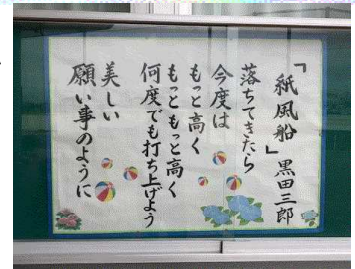 「紙風船」黒田三郎
落ちてきたら
今度は
もっと高く
もっともっと高く
何度でも打ち上げよう
美しい
願い事のように